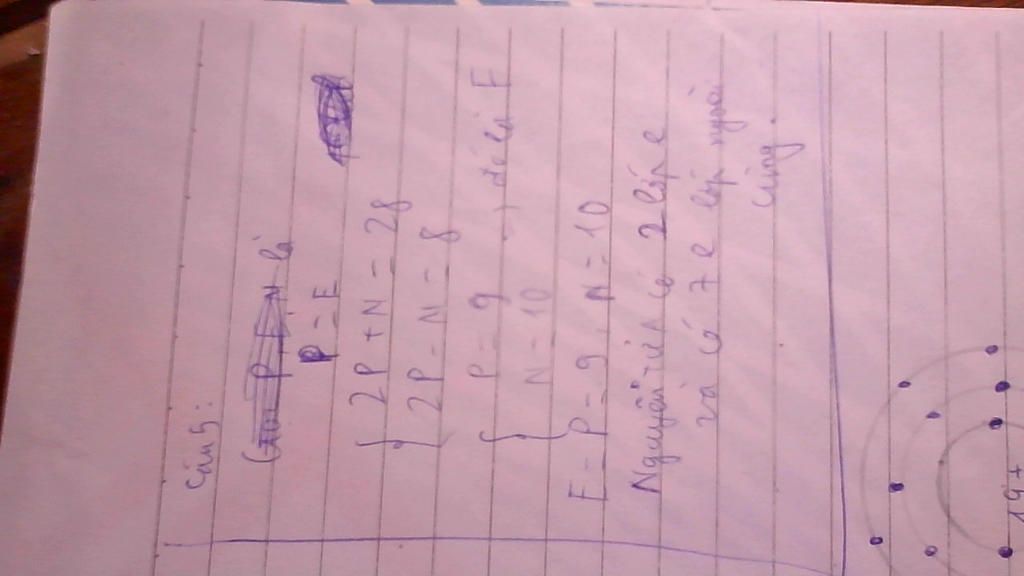 Câu 5:
là
P = E
2P + N = 28
2P - N = 8
P = 9
N = 10 → đó là F
E = P = 9, N = 10
Nguyên tử có 2 lớp e
và có 7 e lớp ngoài
cùng.
19+